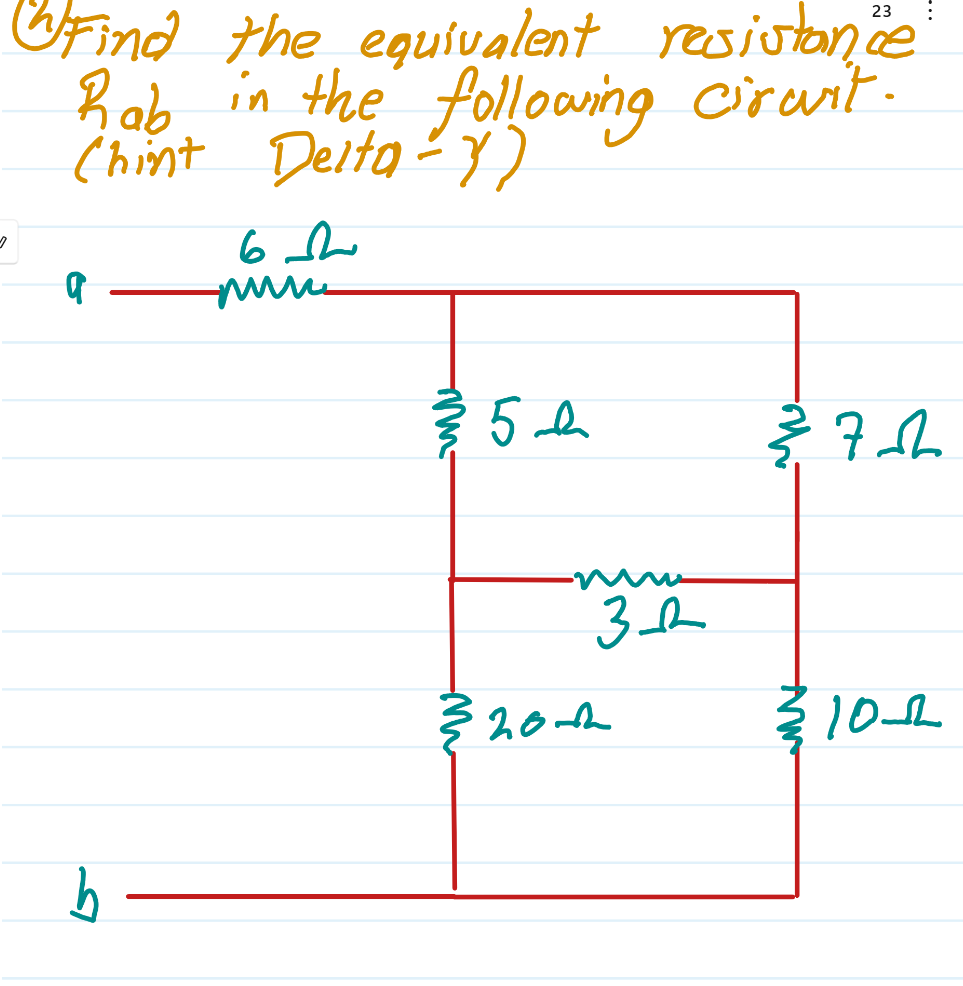 23
(h) Find the equivalent resistance
Rab in the following circuit.
(hint Delta - Y)
6 Ω
a
5 Ω
7 Ω
3 Ω
20 Ω
10 Ω
b